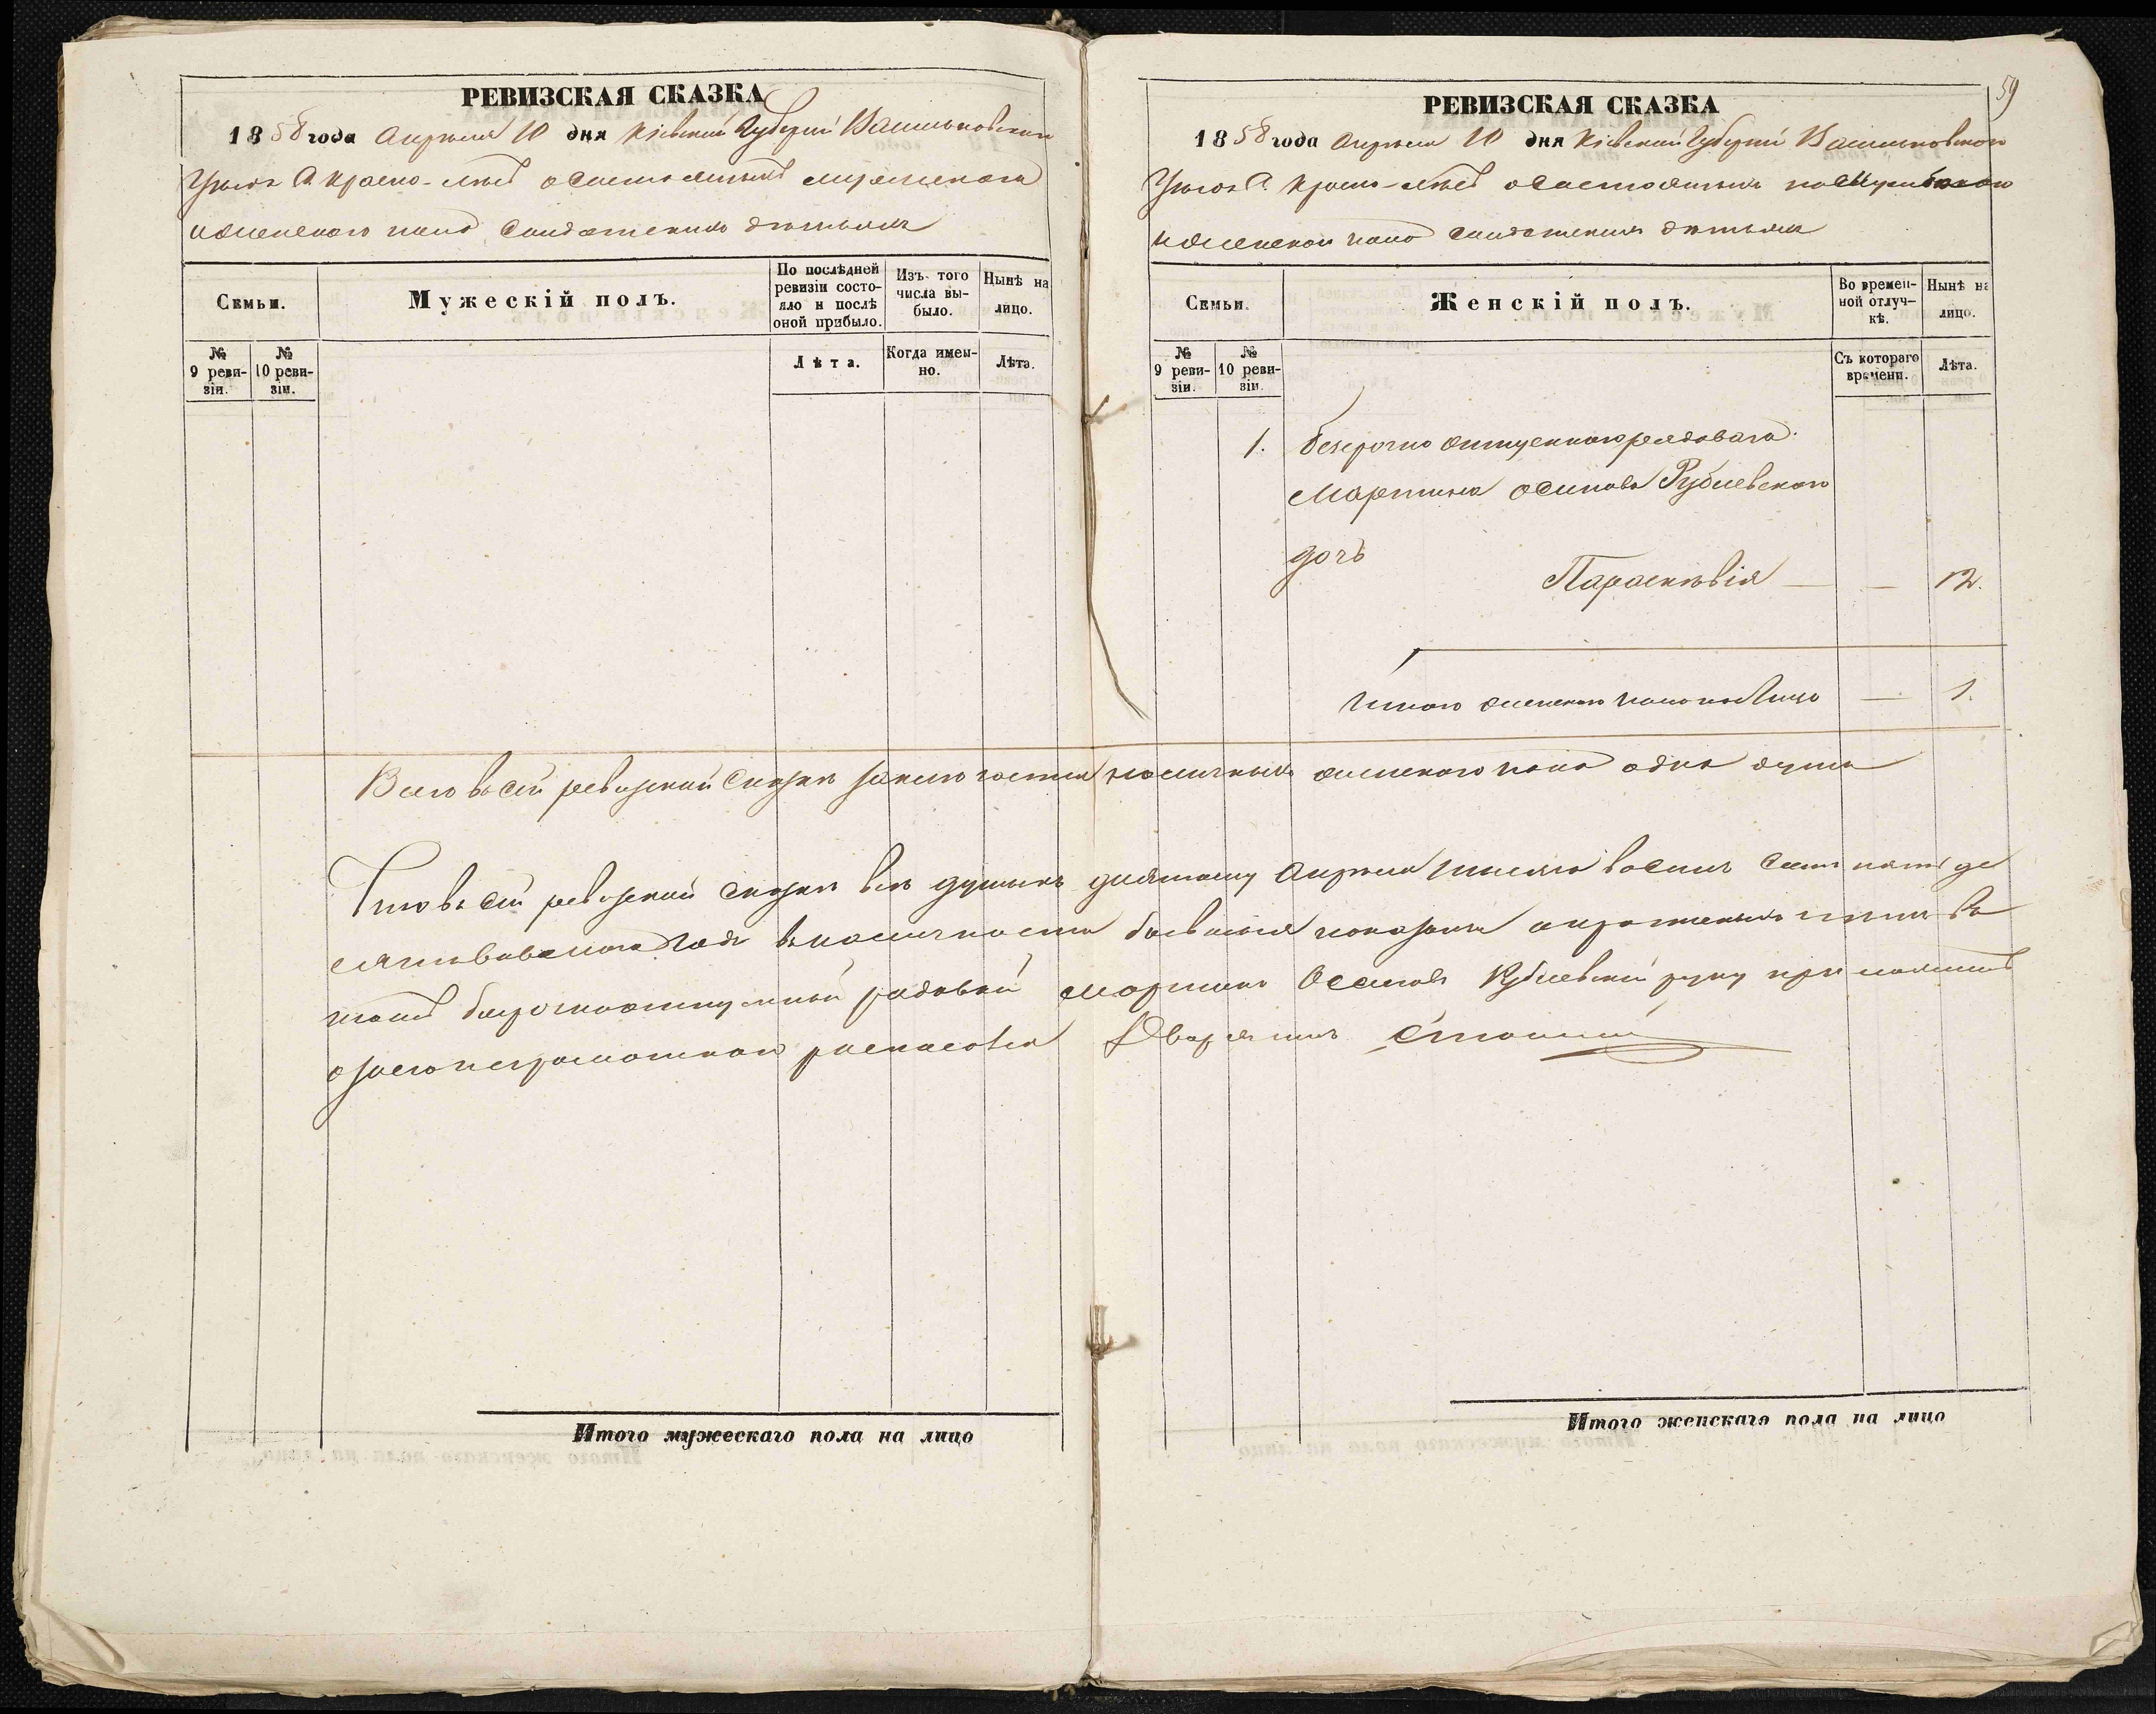 РЕВИЗСКАЯ СКАЗКА
1858 года Апреля 10 дня Кіевской Губерніи Васильковскаго
Уезда С. Красно-лесъ о состоящихъ мужескаго
и женскаго пола солдатскихъ детяхъ
Семьи.
Мужескій полъ.
По послѣдней ревизіи состояло и послѣ оной прибыло.
Изъ того числа выбыло.
Нынѣ на лицо.
№ 9 ревизіи.
№ 10 ревизіи.
Лѣта.
Когда именно.
Лѣта.
Итого мужескаго пола на лицо
59
РЕВИЗСКАЯ СКАЗКА
1858 года Апреля 10 дня Кіевской Губерніи Васильковскаго
Уезда С. Красно-лесъ о состоящихъ
и женскаго пола солдатскихъ детяхъ
Семьи.
Женскій полъ.
Во временной отлучкѣ.
Нынѣ на лицо.
№ 9 ревизіи.
№ 10 ревизіи.
Съ котораго времени.
Лѣта.
1. безсрочно отпускного рядоваго
Мартина Осипова Рублевскаго
дочь
Параскѣвія — — 12.
Итого женскаго пола на лицо — 1.
Всего въ сей ревизской сказке заключается наличныхъ женскаго пола одна душа
Что въ сей ревизской сказке все души къ десятому Апреля тысяча восемь сотъ пятьде
сятъ восьмого года въ наличности бывшія показаны
безсрочноотпускный рядовой Мартинъ Осиповъ Рублевскій руку приложилъ
а за его неграмотного росписался Дворянинъ
Итого женскаго пола на лицо